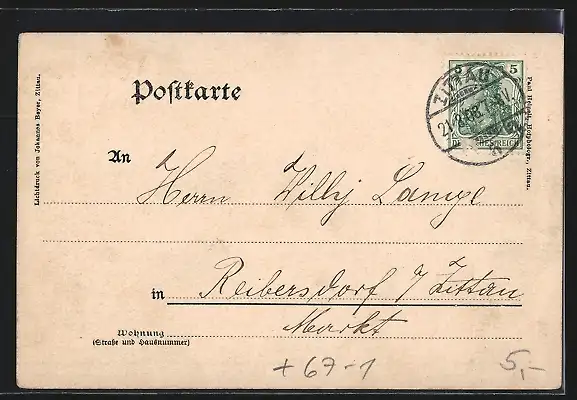 Postkarte
5 5
ZITTAU
DEUTSCHES REICH
An Herrn Willy Lange
in Reibersdorf / Zittau
Markt
Wohnung
(Straße und Hausnummer)
+ 67-1
5,-
Lichtdruck von Johannes Beyer, Zittau.
Zittau.